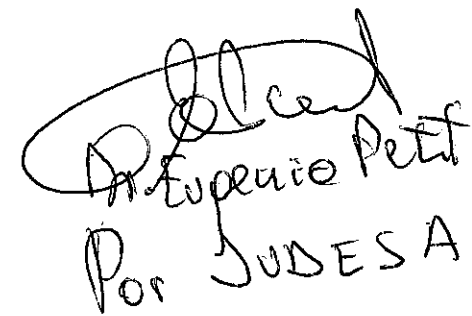 Dr. Eugenio Petit
Por JUDESA